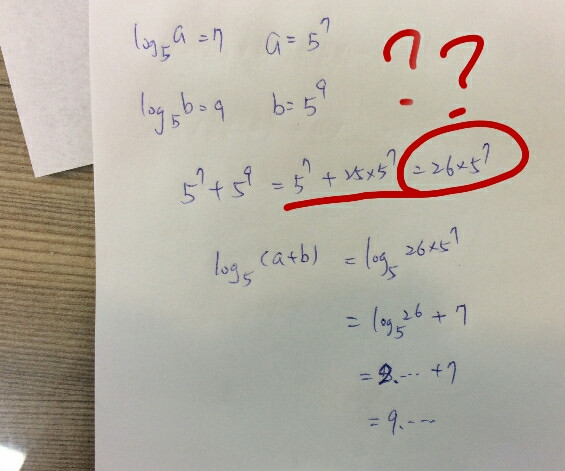 log₅a = 7 a = 5⁷
log₅b = 9 b = 5⁹
? ?
5⁷ + 5⁹ = 5⁷ + 25×5⁷ = 26×5⁷
log₅(a+b) = log₅ 26×5⁷
= log₅26 + 7
= 2.··· + 7
= 9.···